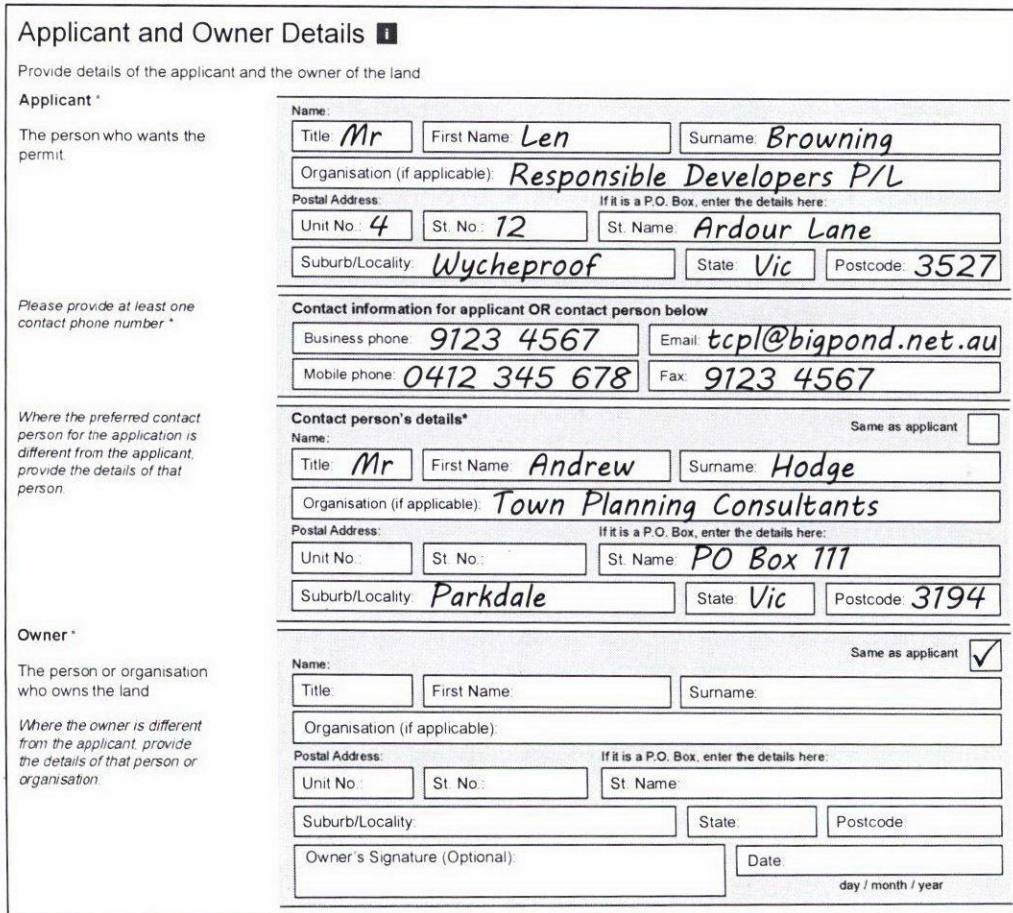 Applicant and Owner Details i
Provide details of the applicant and the owner of the land
Applicant *
The person who wants the
permit.
Name:
Title: Mr First Name: Len Surname: Browning
Organisation (if applicable): Responsible Developers P/L
Postal Address: If it is a P.O. Box, enter the details here:
Unit No.: 4 St. No.: 12 St. Name: Ardour Lane
Suburb/Locality: Wycheproof State: Vic Postcode: 3527
Please provide at least one
contact phone number *
Contact information for applicant OR contact person below
Business phone: 9123 4567 Email: tcpl@bigpond.net.au
Mobile phone: 0412 345 678 Fax: 9123 4567
Where the preferred contact
person for the application is
different from the applicant,
provide the details of that
person.
Contact person's details* Same as applicant
Name:
Title: Mr First Name: Andrew Surname: Hodge
Organisation (if applicable): Town Planning Consultants
Postal Address: If it is a P.O. Box, enter the details here:
Unit No.: St. No.: St. Name: PO Box 111
Suburb/Locality: Parkdale State: Vic Postcode: 3194
Owner *
The person or organisation
who owns the land
Where the owner is different
from the applicant, provide
the details of that person or
organisation.
Same as applicant ✓
Name:
Title: First Name: Surname:
Organisation (if applicable):
Postal Address: If it is a P.O. Box, enter the details here:
Unit No.: St. No.: St. Name:
Suburb/Locality: State: Postcode:
Owner's Signature (Optional): Date:
day / month / year